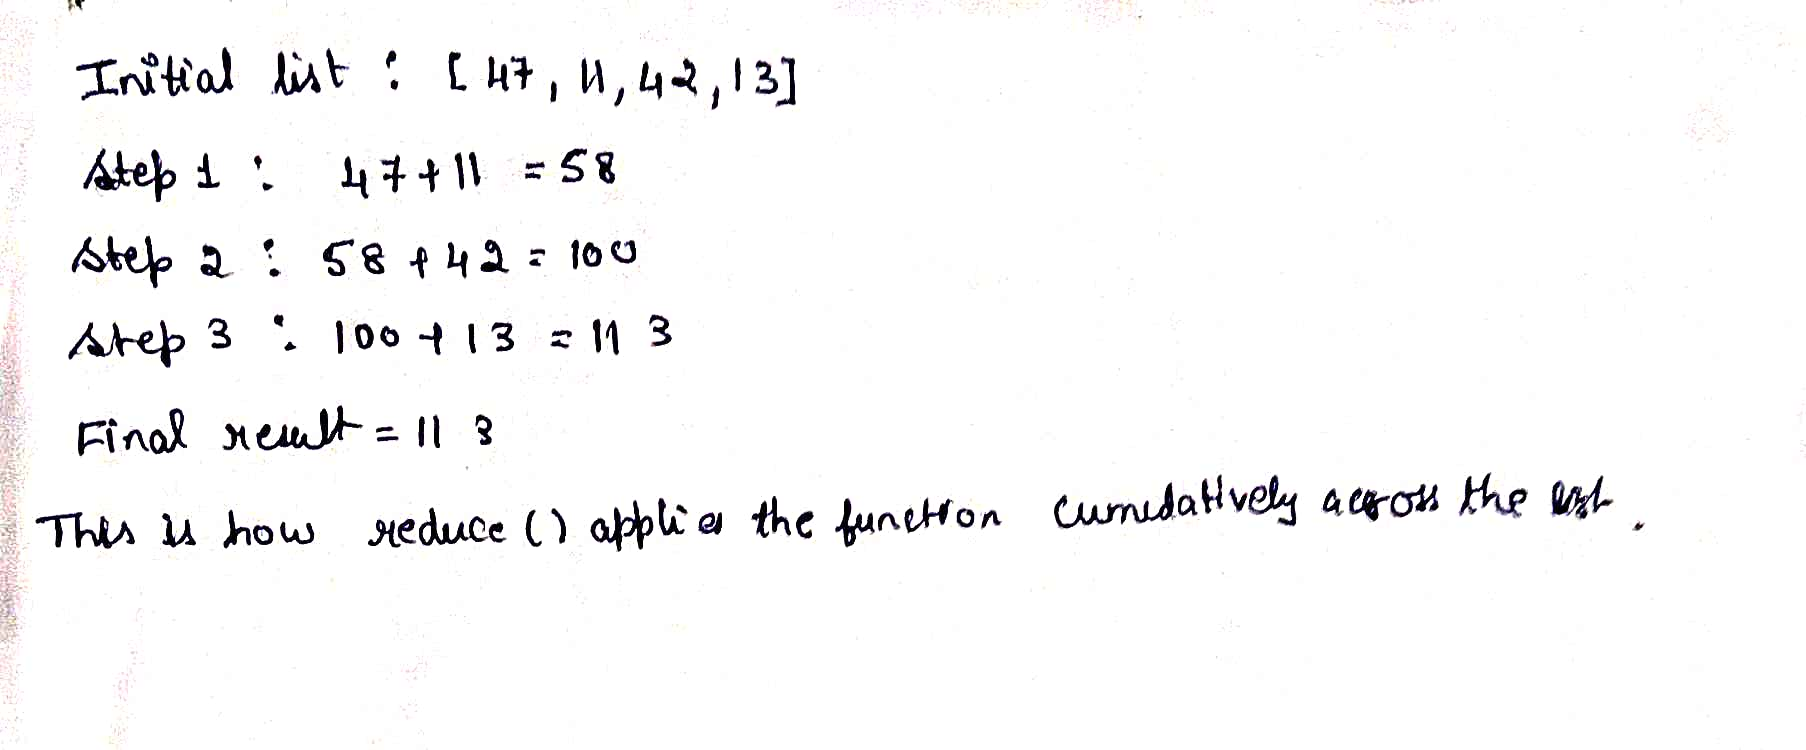 Initial list : [47, 11, 42, 13]
Step 1 : 47+11 = 58
Step 2 : 58 + 42 = 100
Step 3 : 100 + 13 = 113
Final result = 113
This is how reduce () applies the function cumulatively across the list.